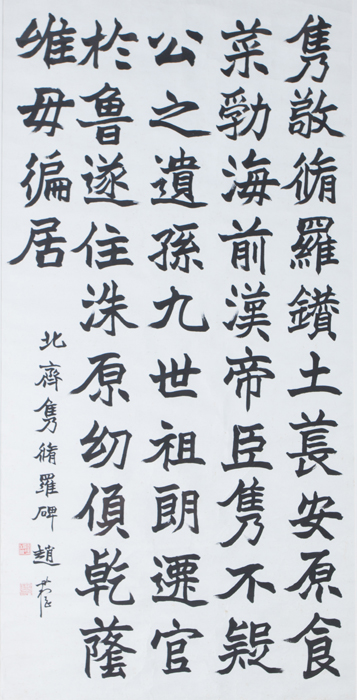 雋敬脩羅鑽土萇安原食
菜勃海前漢帝臣雋不疑
公之遺孫九世祖朗遷官
於魯遂住洙原幼傾乾蔭
唯毋偏居
北齊雋脩羅碑 趙